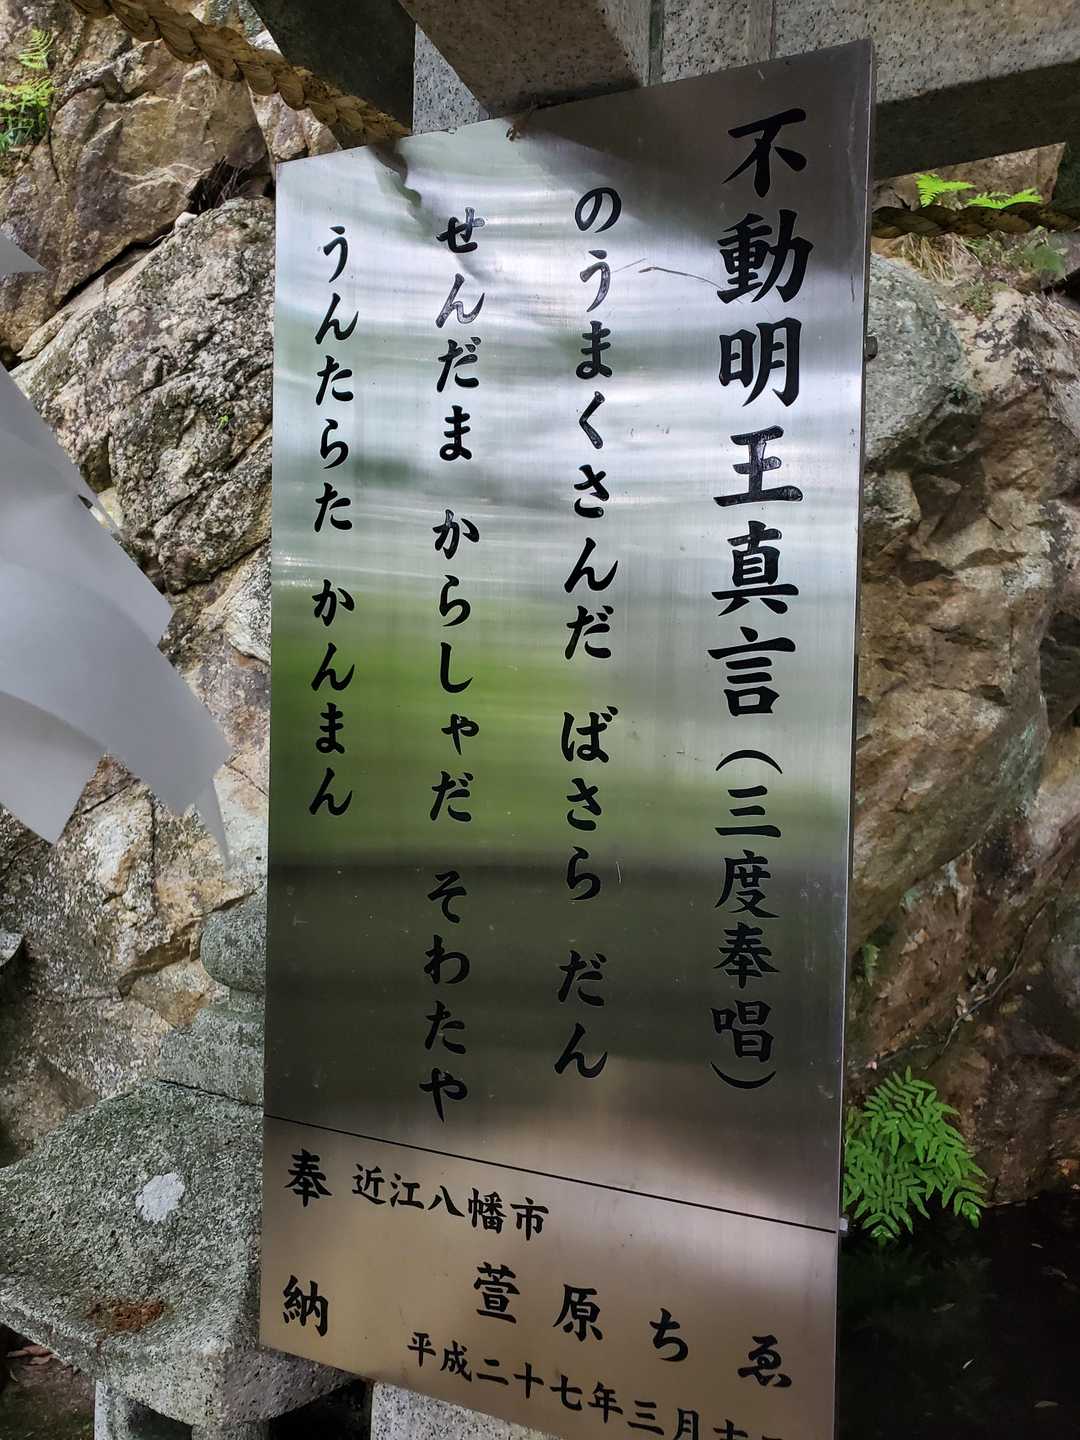 不動明王真言（三度奉唱）
のうまくさんだ ばさら だん
せんだま からしゃだ そわたや
うんたらた かんまん
奉納
近江八幡市
萱原ちゑ
平成二十七年三月